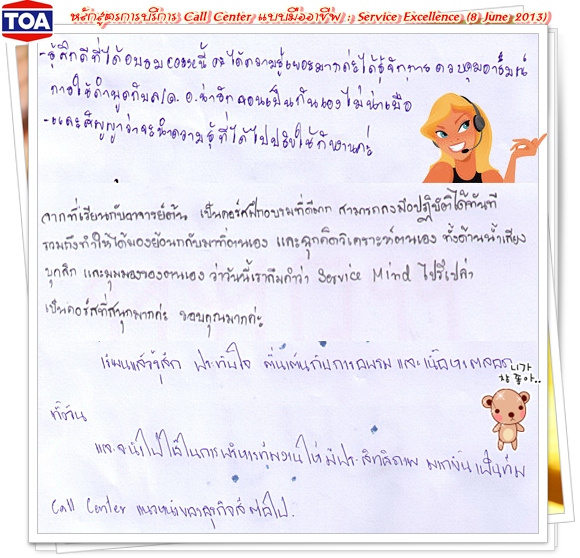 TOA
หลักสูตรการบริการ Call Center แบบมืออาชีพ : Service Excellence (8 June 2013)
- รู้สึกดีที่ได้อบรม course นี้ ได้ความรู้เยอะมากค่ะ ได้รู้จักการ ควบคุมอารมณ์
การใช้คำพูดกับ อ.น่ารัก สอนเป็นกันเองไม่น่าเบื่อ
- และสัญญาว่าจะนำความรู้ที่ได้ไปปรับใช้กับงานค่ะ
จากที่เรียนกับอาจารย์ต้น เป็นคอร์สฝึกอบรมที่ดีมาก สามารถลงมือปฏิบัติได้ทันที
รวมถึงทำให้ได้มองย้อนกลับมาที่ตนเอง และฉุกคิดวิเคราะห์ตนเอง ทั้งด้านน้ำเสียง
บุคลิก และมุมมองของตนเอง ว่าวันนี้เราลืมคำว่า Service Mind ไปรึเปล่า
เป็นคอร์สที่สนุกมากค่ะ ขอบคุณมากค่ะ
เรียนแล้วรู้สึก ประทับใจ ตื่นเต้นกับการอบรม และเนื้อหาหลักสูตร
니가
참 좋아..
ที่ร้าน
และจะนำไปใช้ในการบริหารทีมงานให้มีประสิทธิภาพ มากขึ้น เป็นทีม
Call Center แนวหน้าของธุรกิจสี ต่อไป.